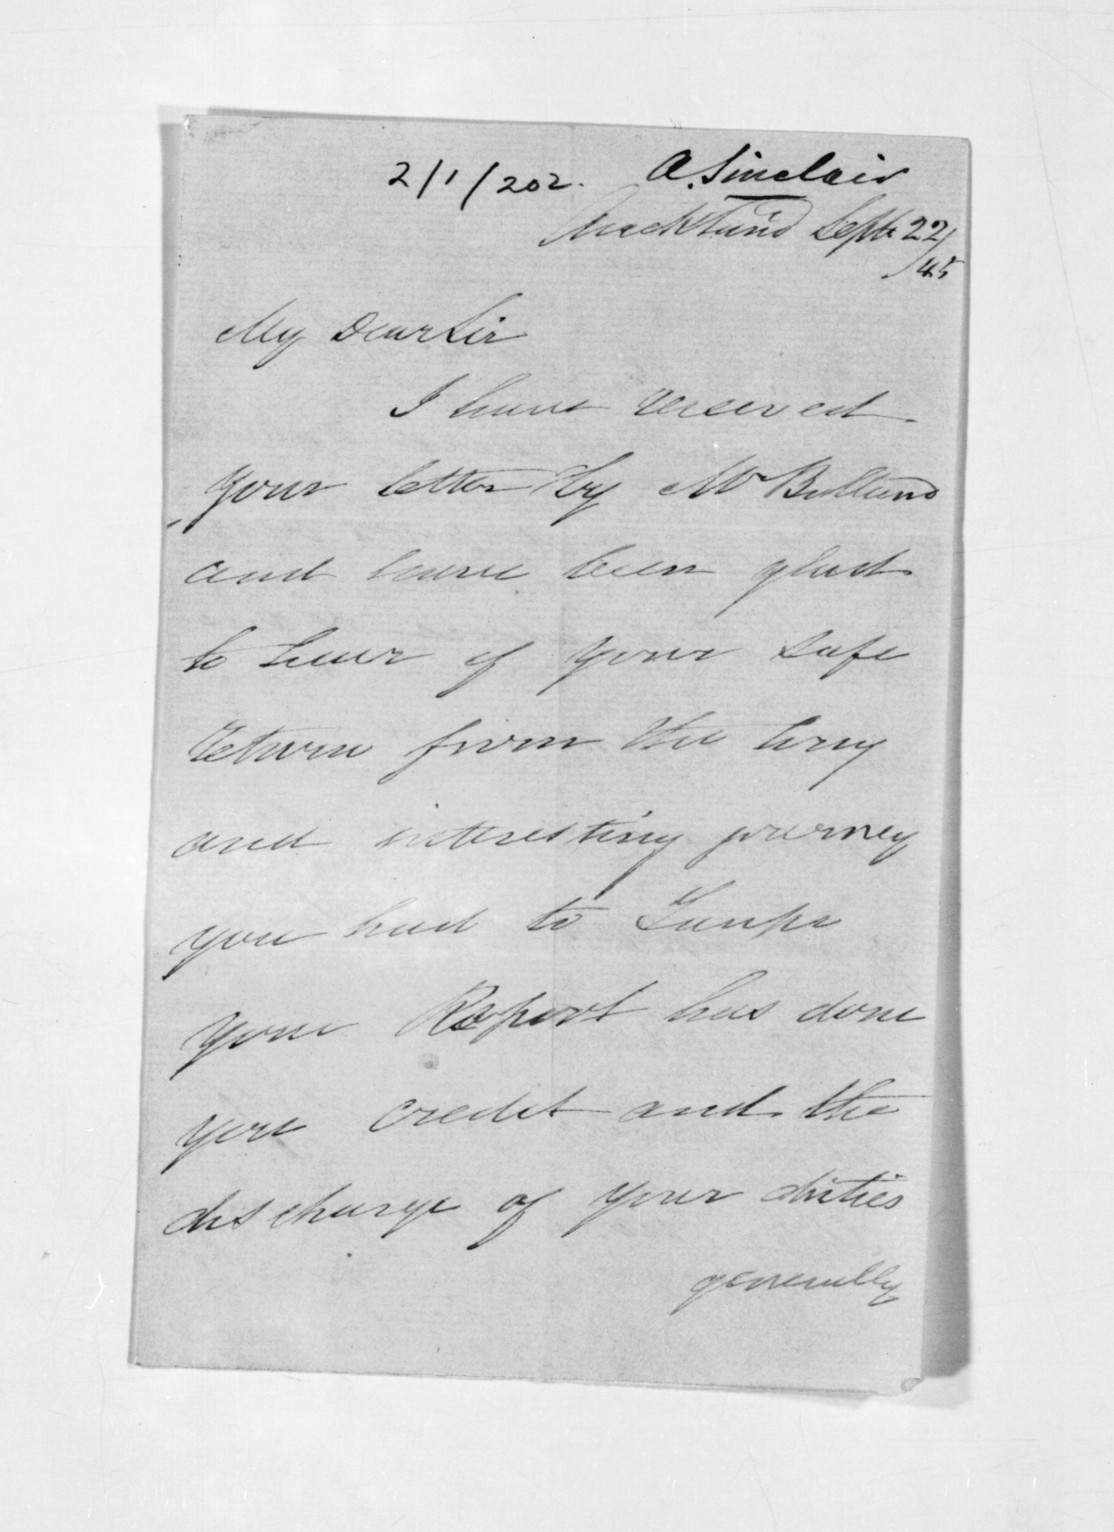 2/1/202. A. Sinclair
Auckland Septr 22/45
My Dear Sir
I have received
your letter by Mr Bolland
and have been glad
to hear of your safe
return from the long
and interesting journey
you had to Taupo
your Report has done
you credit and the
discharge of your duties
generally